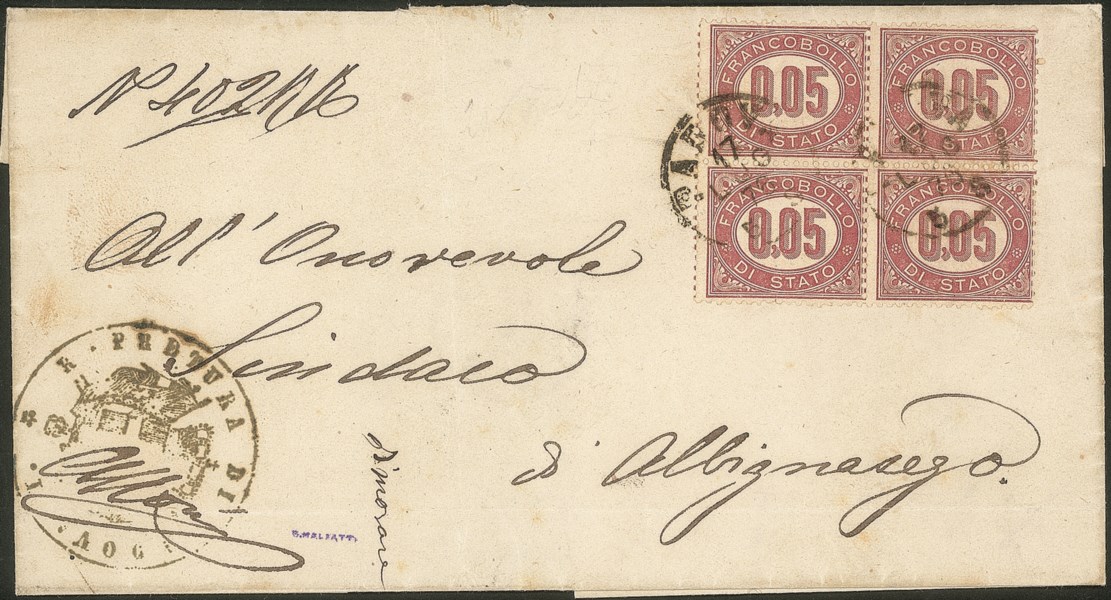 Nº 402
FRANCOBOLLO
0,05
DI STATO
FRANCOBOLLO
0,05
DI STATO
FRANCOBOLLO
0,05
DI STATO
FRANCOBOLLO
0,05
DI STATO
17
All' Onorevole
Sindaco
di Albignasego.
R. PRETURA DI